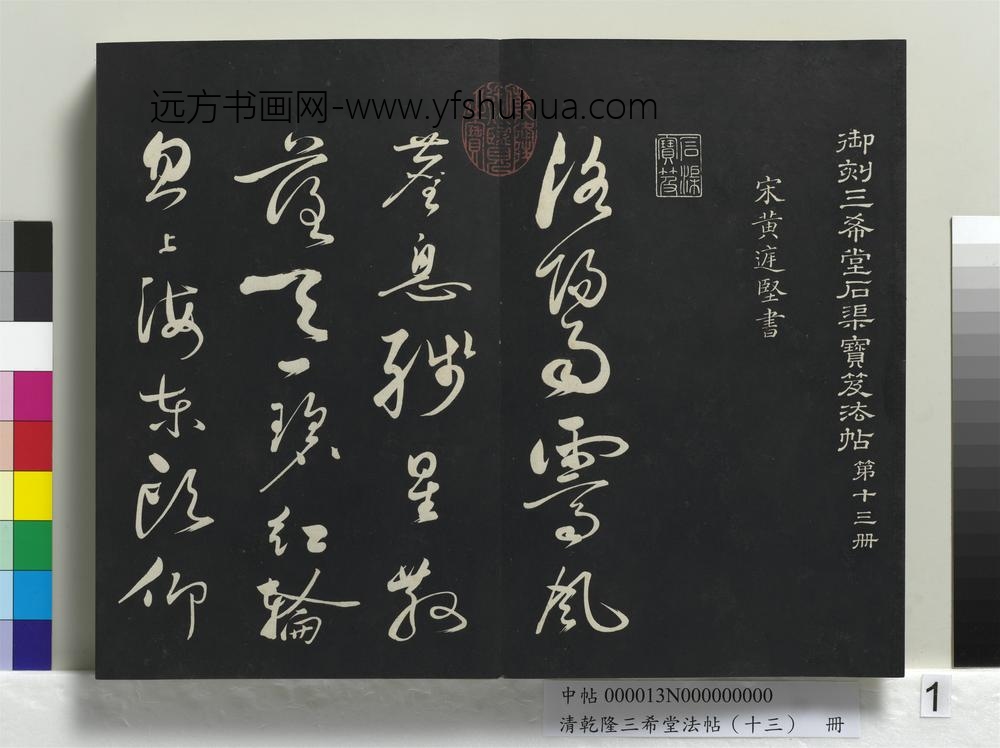 远方书画网-www.yfshuhua.com
御刻三希堂石渠寶笈法帖 第十三冊
宋黃庭堅書
石渠寶笈
洛陽雨霽風
塵息殘星散
落天一碧紅輪
忽上海東頭仰
中帖 000013N000000000
清乾隆三希堂法帖（十三） 冊
1